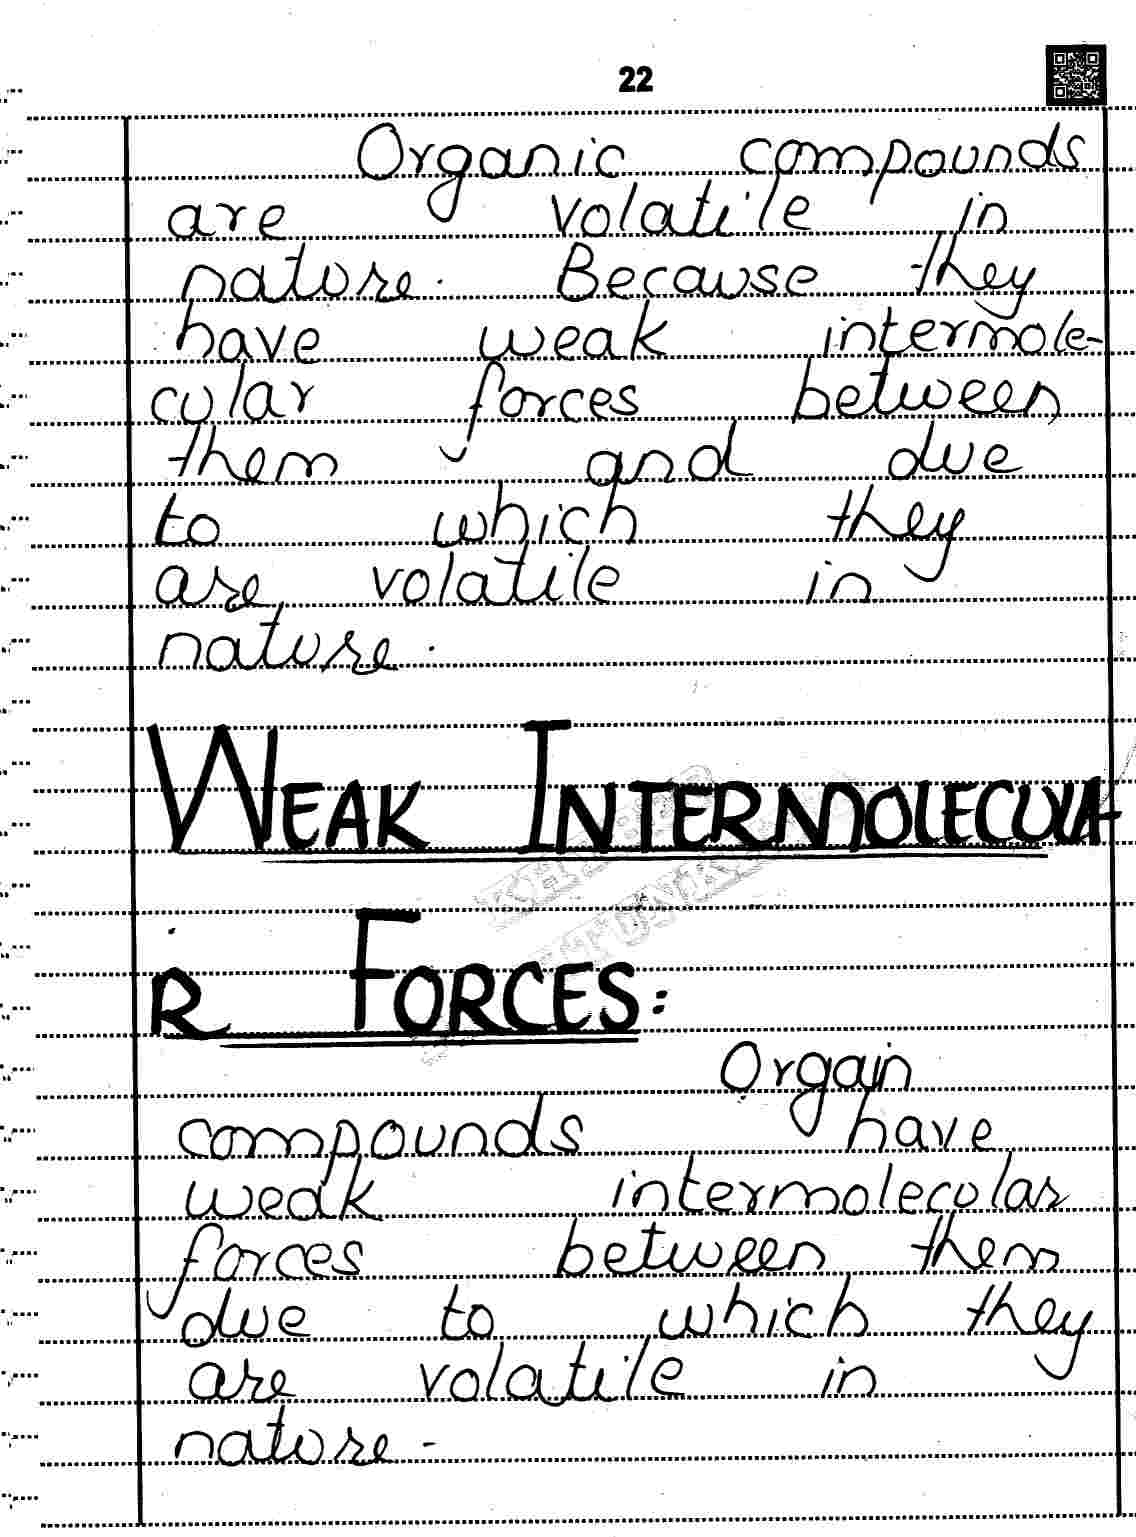 22
Organic compounds
are volatile in
nature. Because they
have weak intermole-
cular forces between
them and due
to which they
are volatile in
nature.
WEAK INTERMOLECULA-
R FORCES:
Orgain
compounds have
weak intermolecular
forces between them
due to which they
are volatile in
nature.